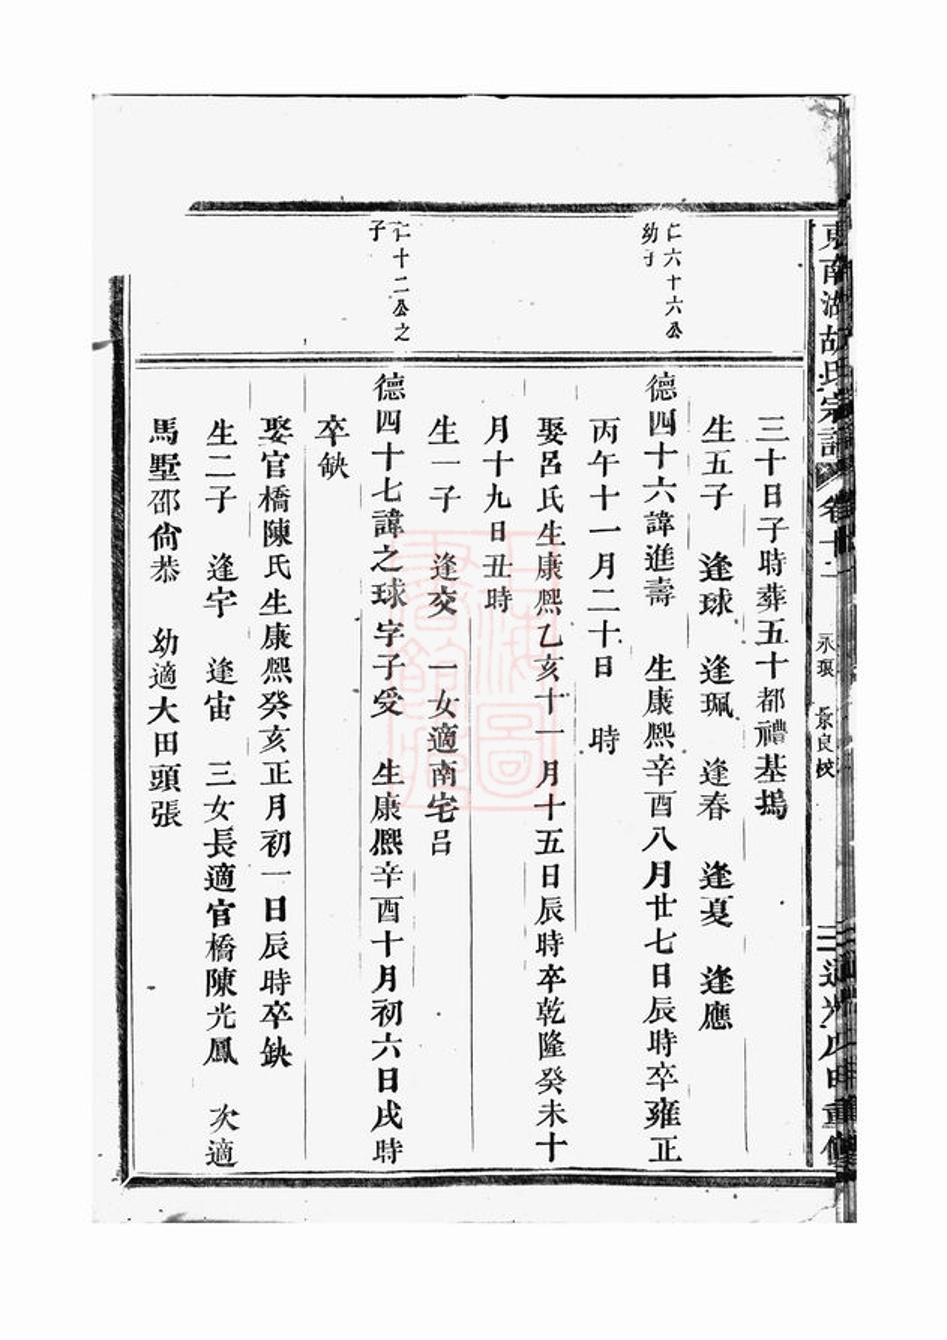 東南湖胡氏宗譜 卷十二 永琅 景良校 三 道光戊申重修
三十日子時葬五十都禮基塢
生五子 逢球 逢珮 逢春 逢夏 逢應
仁六十六公
幼子
德四十六諱進壽 生康熈辛酉八月廿七日辰時卒雍正
丙午十一月二十日 時
娶呂氏生康熈乙亥十一月十五日辰時卒乾隆癸未十
月十九日丑時
生一子 逢交 一女適南宅呂
仁十二公之
子
德四十七諱之球字子受 生康熈辛酉十月初六日戌時
卒缺
娶官橋陳氏生康熈癸亥正月初一日辰時卒缺
生二子 逢宇 逢宙 三女長適官橋陳光鳳 次適
馬墅邵尙恭 幼適大田頭張
上海圖
書館藏